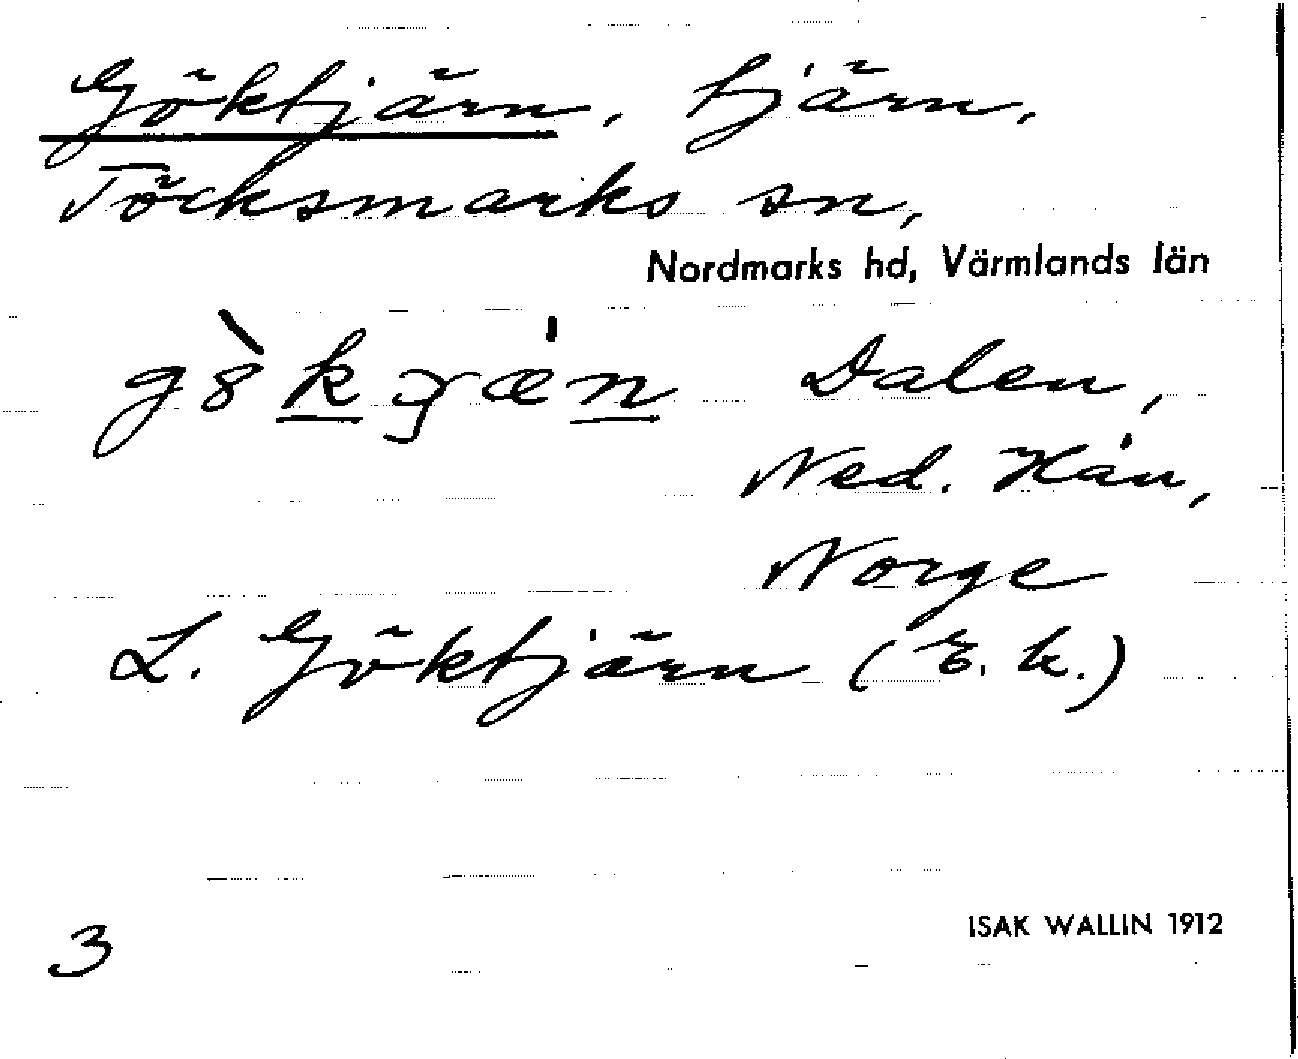 Göktjärn, tjärn,
Töcksmarks sn,
Nordmarks hd, Värmlands län
Dalen,
Ned. Hån,
Norge
L. Göktjärn (E. k.)
3
ISAK WALLIN 1912